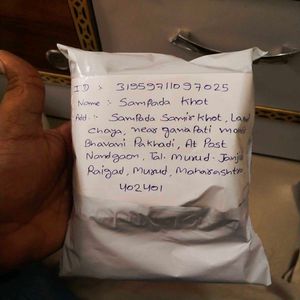 ID :- 31959711097025
Name :- Sampada Khot
Add :- Sampada Samir Khot,
chaya, near ganapati
Bhavani Pakhadi, At Post
Nandgaon, Tal. Murud-Janjira
Raigad, Murud, Maharashtra
402401